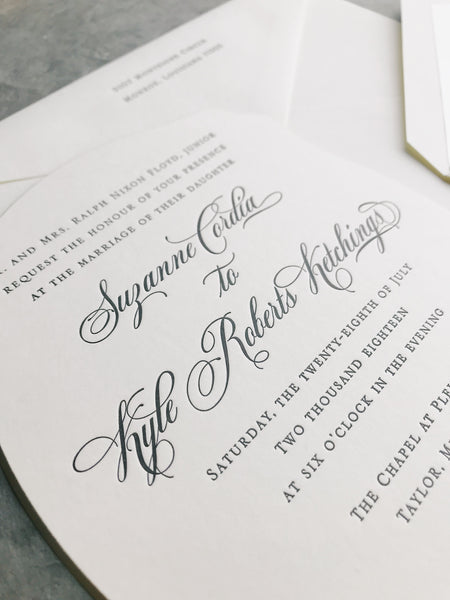 Monroe, Louisiana
and Mrs. Ralph Nixon Floyd, Junior
request the honour of your presence
at the marriage of their daughter
Suzanne Cordia
to
Kyle Roberts Ketchings
Saturday, the twenty-eighth of July
Two thousand eighteen
at six o'clock in the evening
The Chapel at
Taylor,